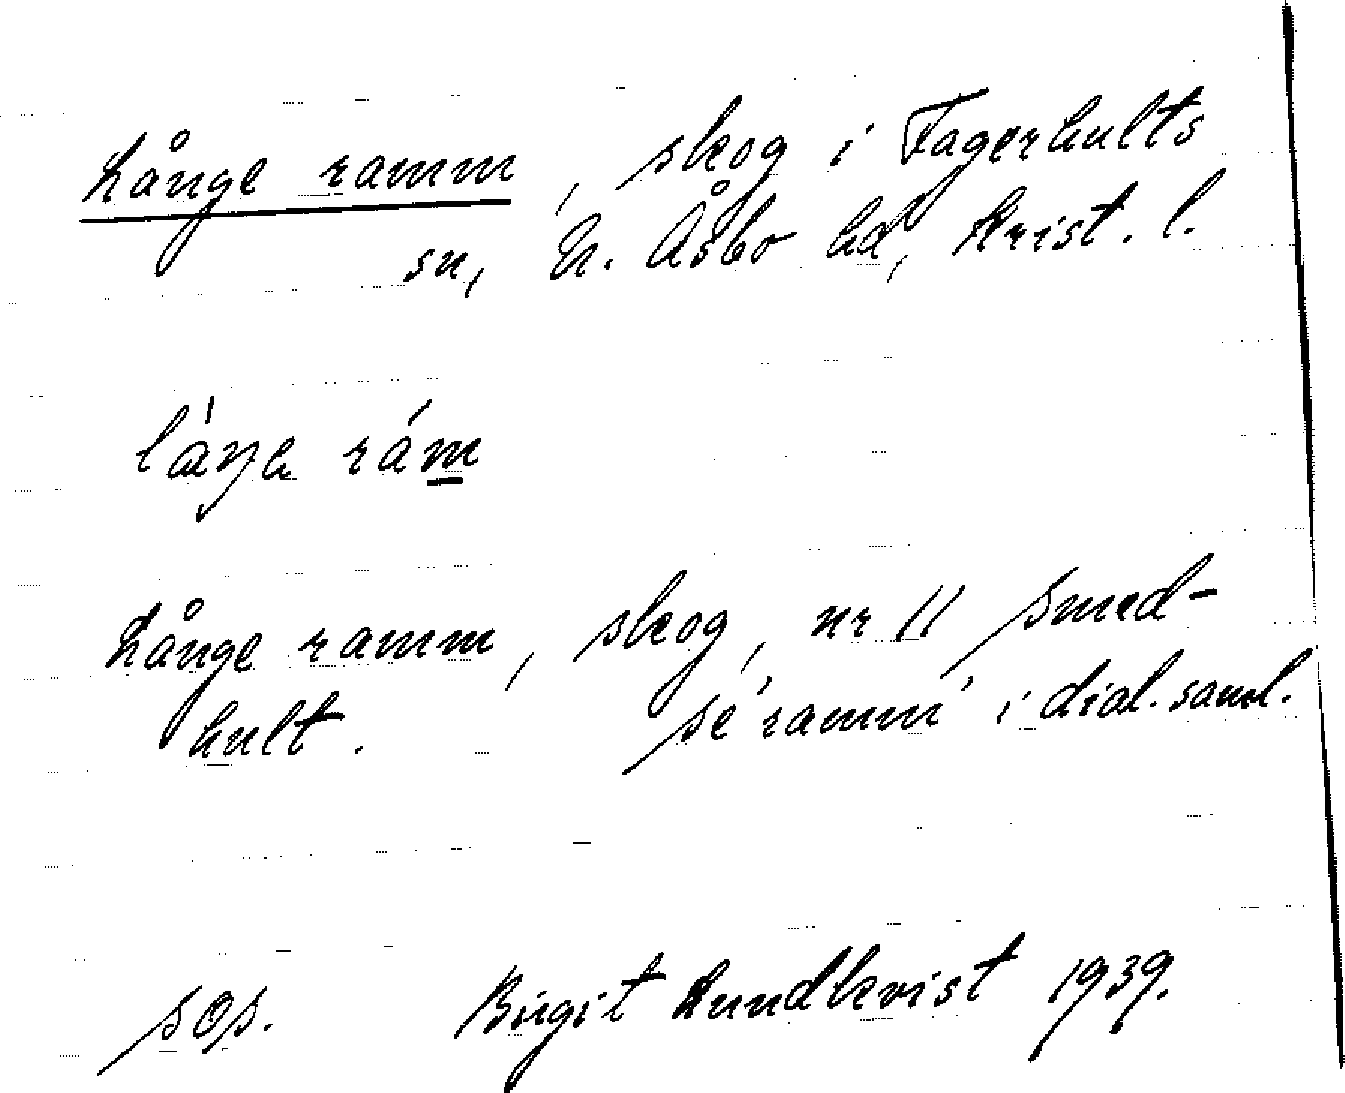 Långe ramm, skog i Fagerhults
sn, N. Åsbo hd, Krist. l.
låŋa rám
Långe ramm, skog, nr 11 Smed-
hult. Se 'ramm' i dial.saml.
SOS. Birgit Lundkvist 1939.